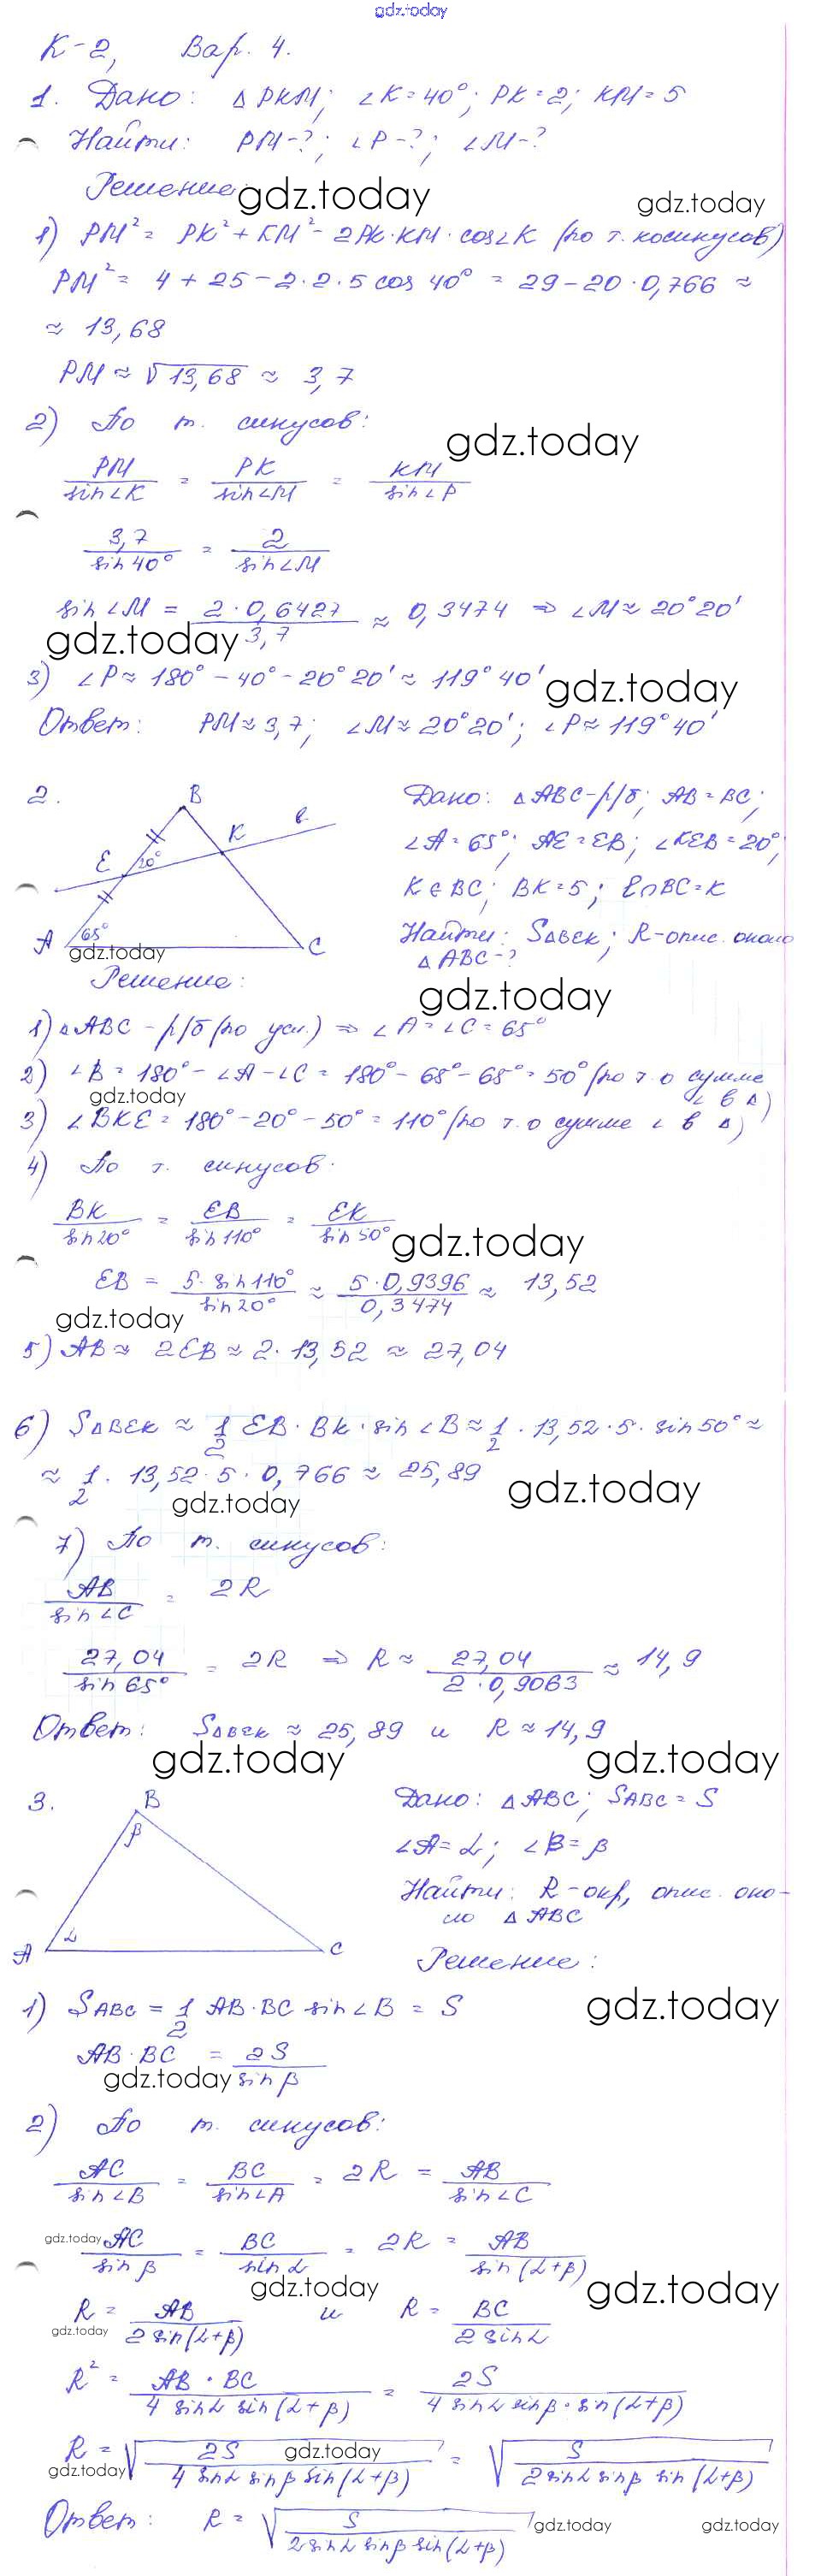 gdz.today
К-2, Вар. 4.
1. Дано: △PKM; ∠K=40°; PK=2; KM=5
Найти: PM-?; ∠P-?; ∠M-?
Решение: gdz.today gdz.today
1) PM² = PK² + KM² - 2PK·KM·cos∠K (по т. косинусов)
PM² = 4 + 25 - 2·2·5 cos 40° = 29 - 20·0,766 ≈
≈ 13,68
PM ≈ √13,68 ≈ 3,7
2) По т. синусов:
gdz.today
PM/sin∠K = PK/sin∠M = KM/sin∠P
3,7/sin40° = 2/sin∠M
sin∠M = 2·0,6427/3,7 ≈ 0,3474 ⇒ ∠M ≈ 20°20'
gdz.today
3) ∠P ≈ 180° - 40° - 20°20' ≈ 119°40'
gdz.today
Ответ: PM≈3,7; ∠M≈20°20'; ∠P≈119°40'
2.
B
K
в
E
20°
A
65°
C
gdz.today
Дано: △ABC-р/б; AB=BC;
∠A=65°; AE=EB; ∠KEB=20°;
K∈BC; BK=5; ℓ∩BC=K
Найти: S△BEK; R-опис. около
△ABC-?
Решение:
gdz.today
1) △ABC - р/б (по усл.) ⇒ ∠A=∠C=65°
2) ∠B = 180° - ∠A - ∠C = 180° - 65° - 65° = 50° (по т. о сумме
∠ в △)
gdz.today
3) ∠BKE = 180° - 20° - 50° = 110° (по т. о сумме ∠ в △)
4) По т. синусов:
BK/sin20° = EB/sin110° = EK/sin50°
gdz.today
EB = 5·sin110°/sin20° ≈ 5·0,9396/0,3474 ≈ 13,52
gdz.today
5) AB ≈ 2EB ≈ 2·13,52 ≈ 27,04
6) S△BEK ≈ 1/2 EB·BK·sin∠B ≈ 1/2·13,52·5·sin50° ≈
≈ 1/2·13,52·5·0,766 ≈ 25,89
gdz.today
gdz.today
7) По т. синусов:
AB/sin∠C = 2R
27,04/sin65° = 2R ⇒ R ≈ 27,04/2·0,9063 ≈ 14,9
Ответ: S△BEK ≈ 25,89 и R ≈ 14,9
gdz.today gdz.today
3.
B
β
A
α
C
Дано: △ABC; SABC = S
∠A=α; ∠B=β
Найти: R-окр, опис. око-
ло △ABC
Решение:
1) SABC = 1/2 AB·BC sin∠B = S
gdz.today
AB·BC = 2S/sinβ
gdz.today
2) По т. синусов:
AC/sin∠B = BC/sin∠A = 2R = AB/sin∠C
gdz.today
AC/sinβ = BC/sinα = 2R = AB/sin(α+β)
gdz.today gdz.today
R = AB/2sin(α+β) и R = BC/2sinα
gdz.today
R² = AB·BC/4sinα sin(α+β) = 2S/4sinα sinβ·sin(α+β)
R = √2S/4sinα sinβ sin(α+β) = √S/2sinα sinβ sin(α+β)
gdz.today
gdz.today
Ответ: R = √S/2sinα sinβ sin(α+β)
gdz.today gdz.today